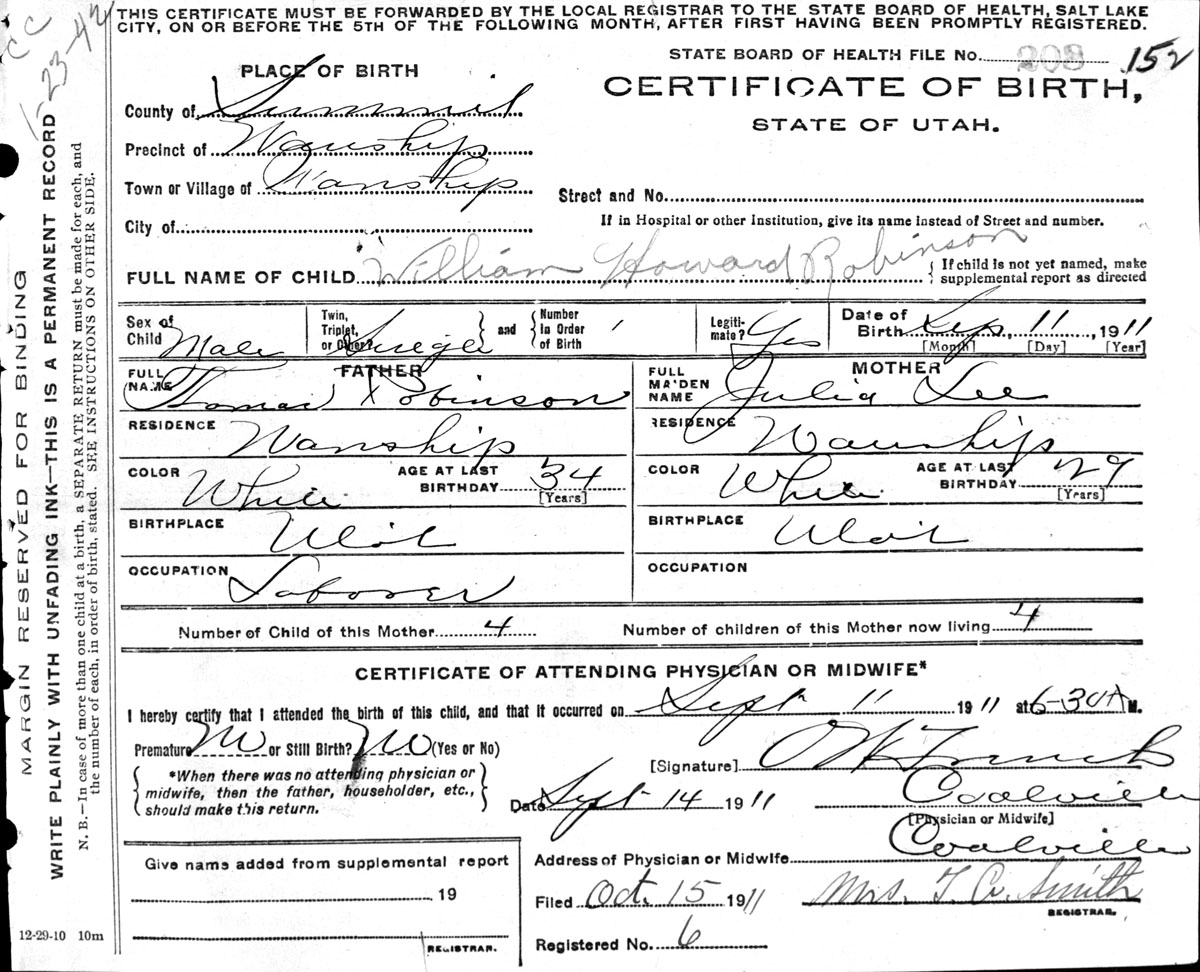 CC
1-23-42
THIS CERTIFICATE MUST BE FORWARDED BY THE LOCAL REGISTRAR TO THE STATE BOARD OF HEALTH, SALT LAKE
CITY, ON OR BEFORE THE 5TH OF THE FOLLOWING MONTH, AFTER FIRST HAVING BEEN PROMPTLY REGISTERED.
STATE BOARD OF HEALTH FILE No. 208 152
PLACE OF BIRTH
CERTIFICATE OF BIRTH,
STATE OF UTAH.
County of Summit
Precinct of Wanship
Town or Village of Wanship
Street and No.
City of
If in Hospital or other Institution, give its name instead of Street and number.
FULL NAME OF CHILD William Howard Robinson
{ If child is not yet named, make
supplemental report as directed
Sex of Child Male
Twin, Triplet, or Other? Single } and { Number in Order of Birth 1
Legitimate? Yes
Date of Birth Sep. 11 1911
[Month] [Day] [Year]
FATHER
FULL NAME Thomas Robinson
RESIDENCE Wanship
COLOR White AGE AT LAST BIRTHDAY 34 [Years]
BIRTHPLACE Utah
OCCUPATION Laborer
MOTHER
FULL MAIDEN NAME Julia Lee
RESIDENCE Wanship
COLOR White AGE AT LAST BIRTHDAY 29 [Years]
BIRTHPLACE Utah
OCCUPATION
Number of Child of this Mother 4 Number of children of this Mother now living 4
CERTIFICATE OF ATTENDING PHYSICIAN OR MIDWIFE*
I hereby certify that I attended the birth of this child, and that it occurred on Sept 11 1911 at 6-30 A M.
Premature No or Still Birth? No (Yes or No)
{ *When there was no attending physician or
midwife, then the father, householder, etc.,
should make this return. }
[Signature]
Date Sept 14 1911 Coalville
[Physician or Midwife]
Address of Physician or Midwife Coalville
Filed Oct. 15 1911 Mrs. T. A. Smith
REGISTRAR.
Registered No. 6
Give name added from supplemental report
19
REGISTRAR.
12-29-10 10m
MARGIN RESERVED FOR BINDING
WRITE PLAINLY WITH UNFADING INK—THIS IS A PERMANENT RECORD
N. B.—In case of more than one child at a birth, a SEPARATE RETURN must be made for each, and
the number of each, in order of birth, stated. SEE INSTRUCTIONS ON OTHER SIDE.